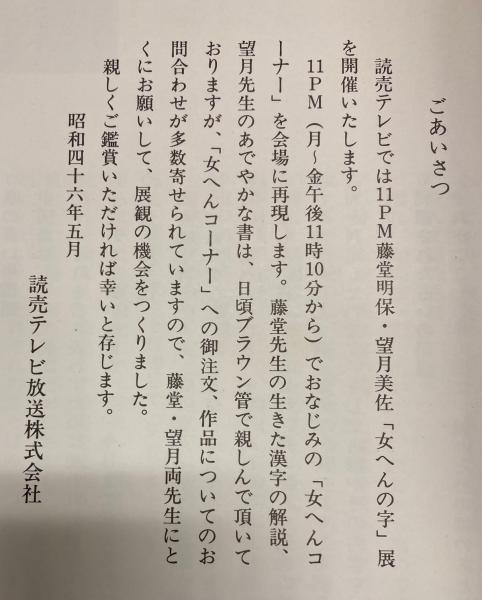 ごあいさつ
読売テレビでは11PM藤堂明保・望月美佐「女へんの字」展
を開催いたします。
11PM（月～金午後11時10分から）でおなじみの「女へんコ
ーナー」を会場に再現します。藤堂先生の生きた漢字の解説、
望月先生のあでやかな書は、日頃ブラウン管で親しんで頂いて
おりますが、「女へんコーナー」への御注文、作品についてのお
問合わせが多数寄せられていますので、藤堂・望月両先生にと
くにお願いして、展観の機会をつくりました。
親しくご鑑賞いただければ幸いと存じます。
昭和四十六年五月
読売テレビ放送株式会社